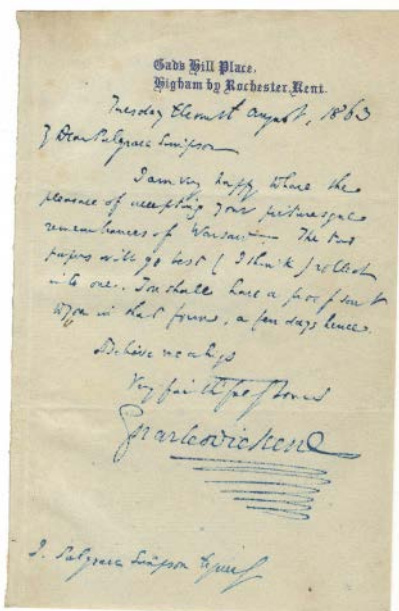 Gad's Hill Place,
Higham by Rochester, Kent.
Tuesday Eleventh August, 1863
My Dear Palgrave Simpson
I am very happy to have the
pleasure of accepting your picturesque
remembrances of Warsaw. The two
papers will go best (I think) rolled
into one. You shall have a proof sent
to you in that form, a few days hence.
Believe me always
Very faithfully Yours
Charles Dickens
J. Palgrave Simpson Esquire